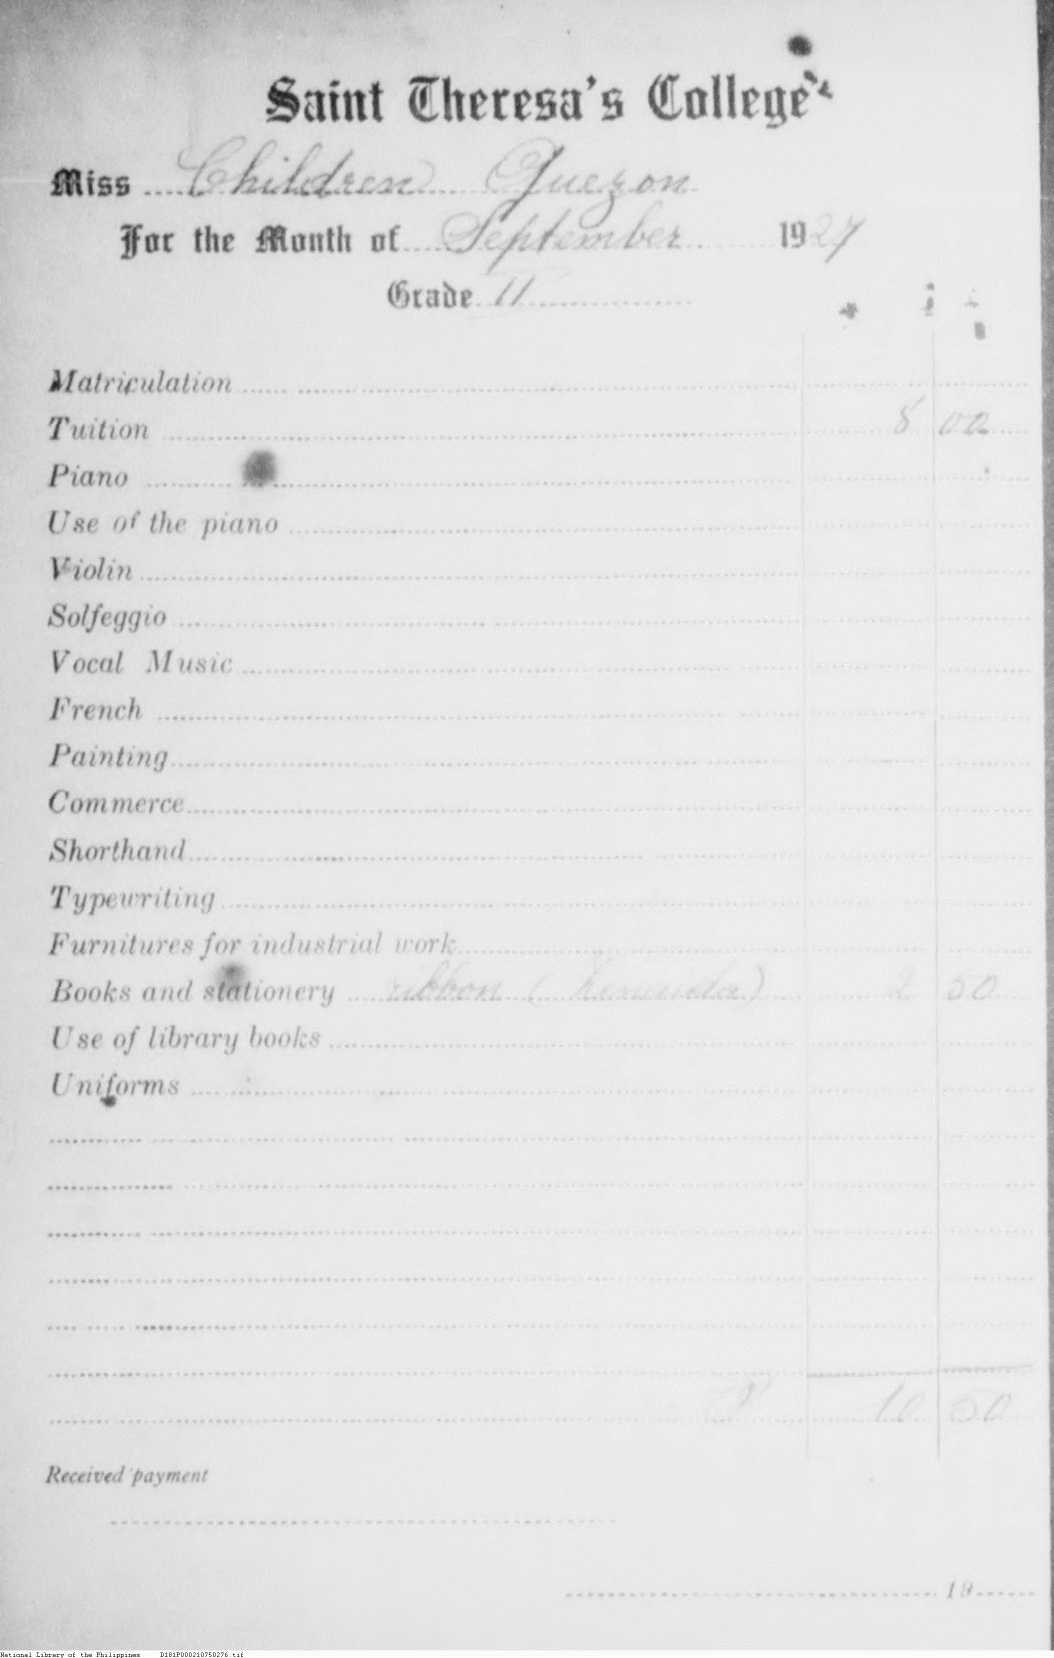 Saint Theresa's College
Miss Children Quezon
For the Month of September 1927
Grade II
Matriculation
Tuition 8 00
Piano
Use of the piano
Violin
Solfeggio
Vocal Music
French
Painting
Commerce
Shorthand
Typewriting
Furnitures for industrial work
Books and stationery ribbon ( ) 2 50
Use of library books
Uniforms
P 10 50
Received payment
19
National Library of the Philippines D181P000210750276.tif